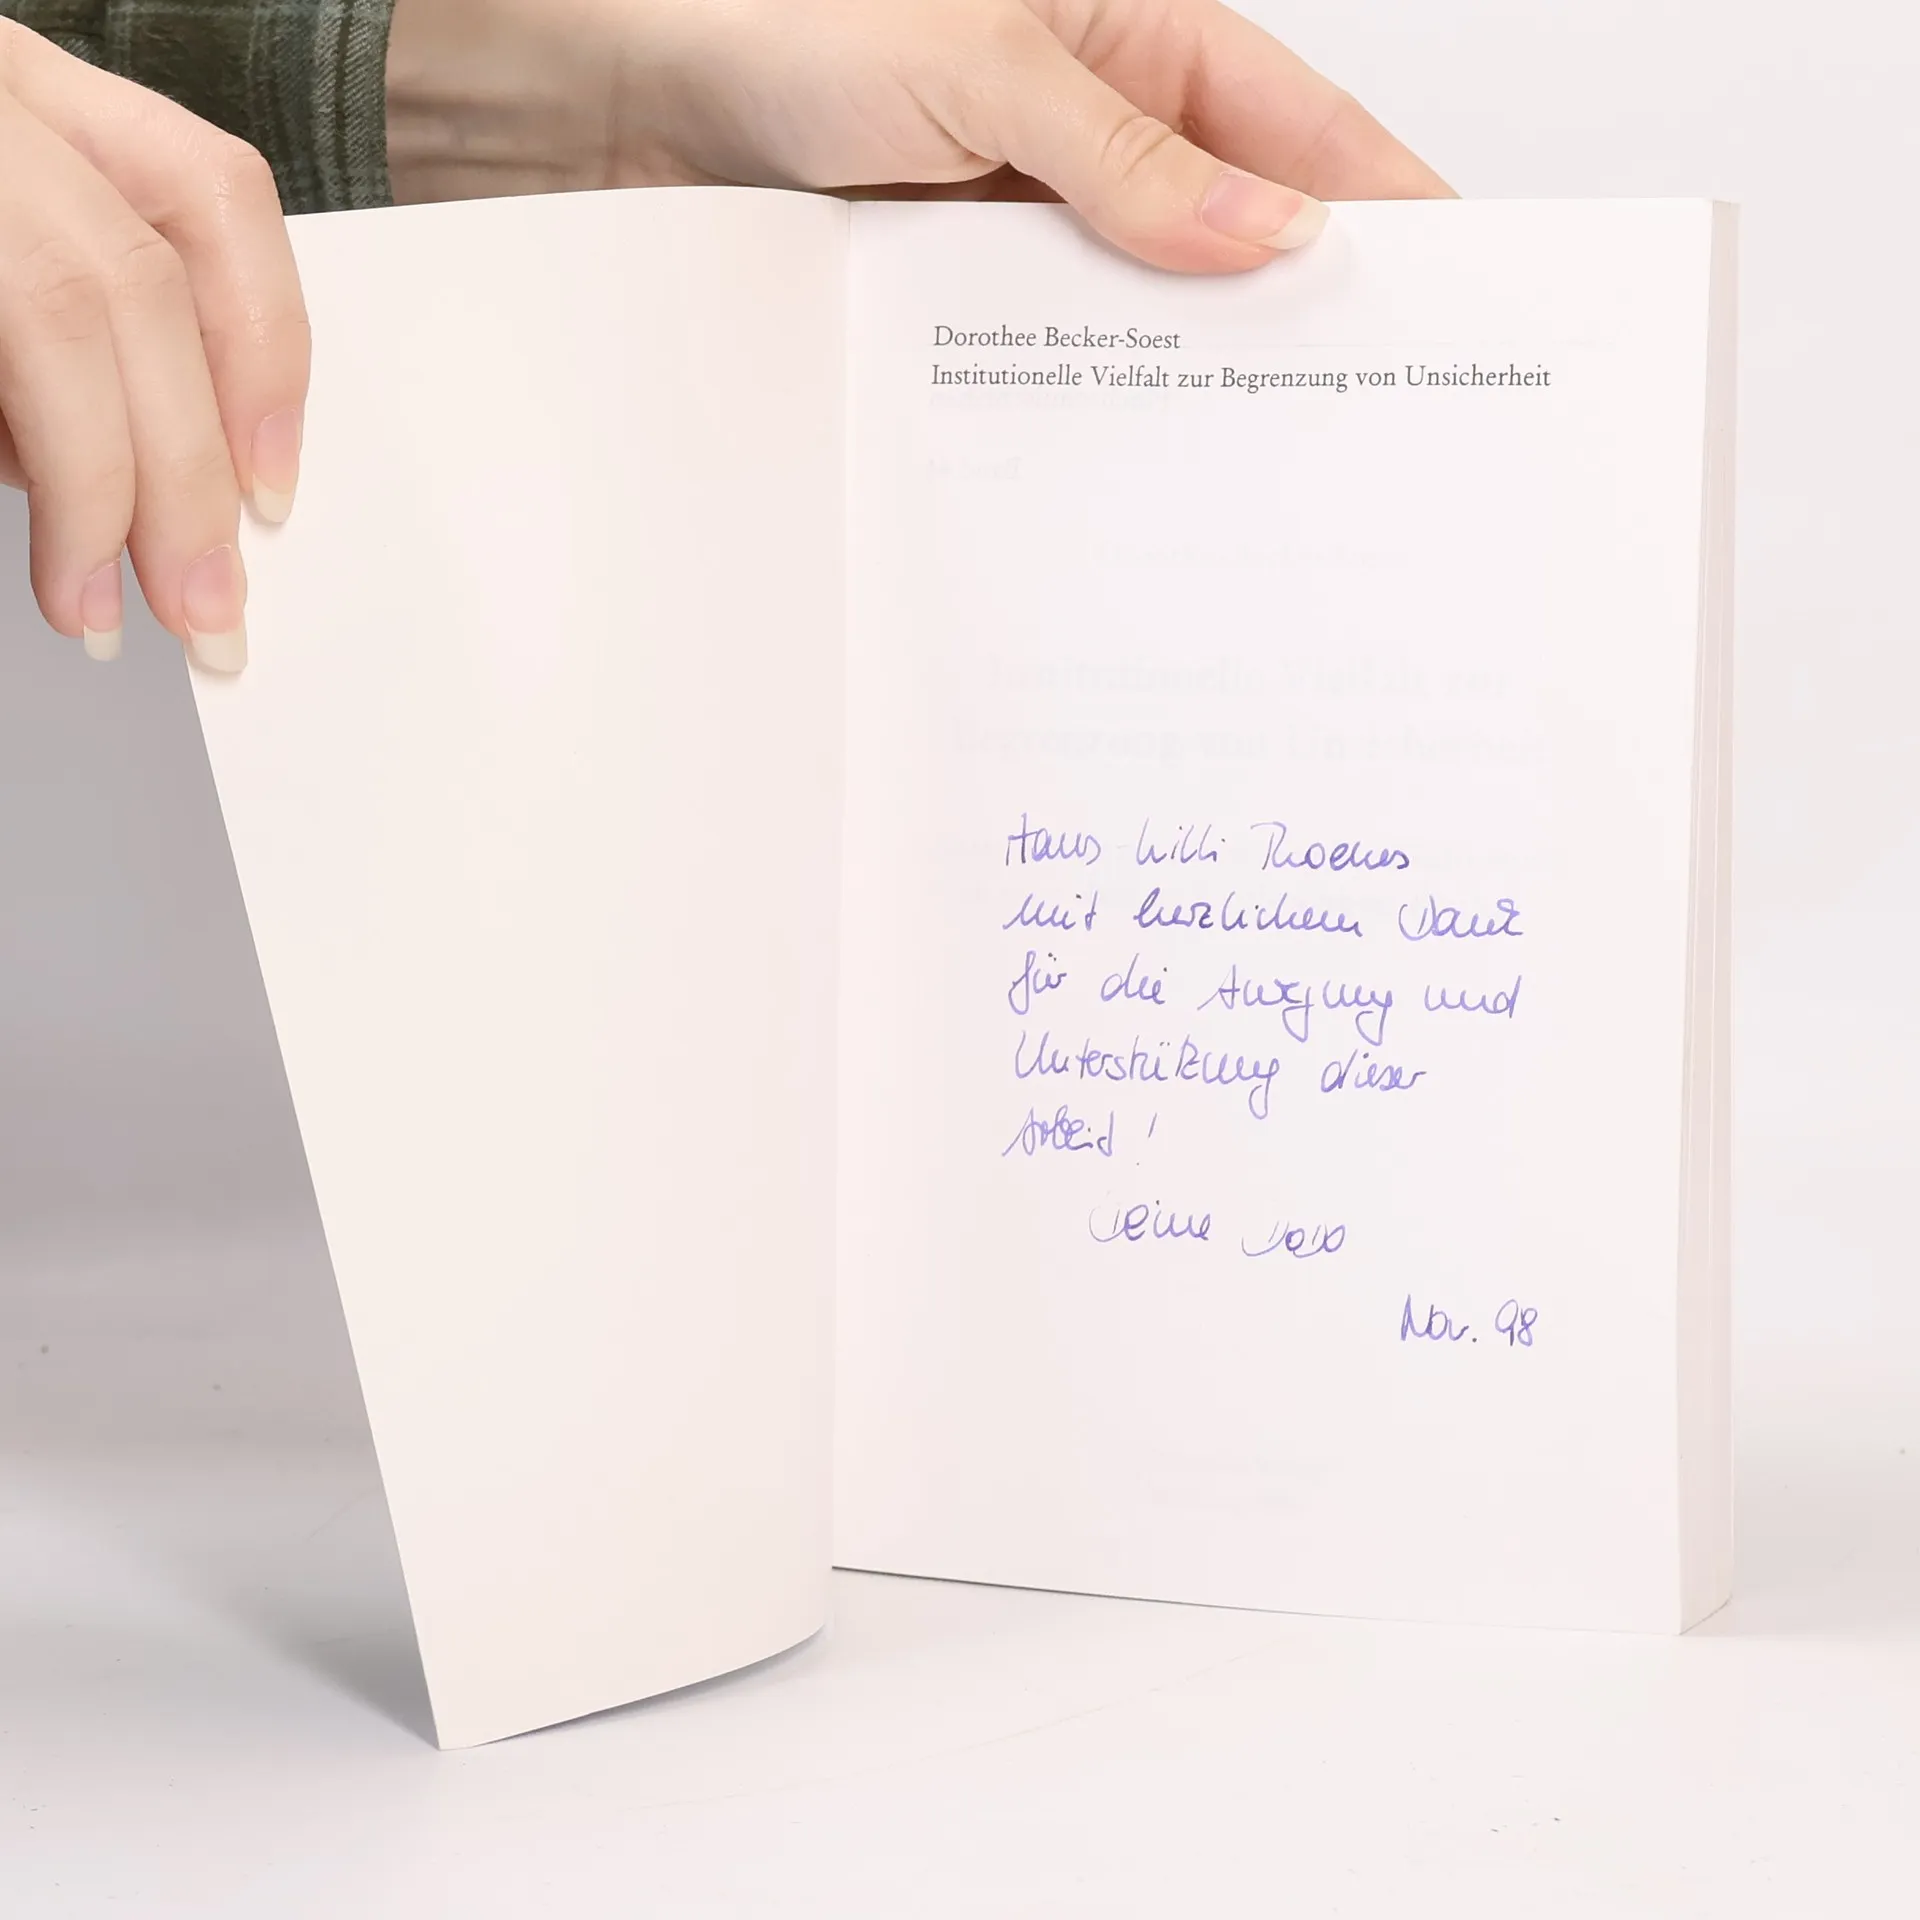 Dorothee Becker-Soest
Institutionelle Vielfalt zur Begrenzung von Unsicherheit
Hans Willi
mit herzlichem Dank
für die Anregung und
Unterstützung dieser
Arbeit!
Deine Dodo
Nov. 98